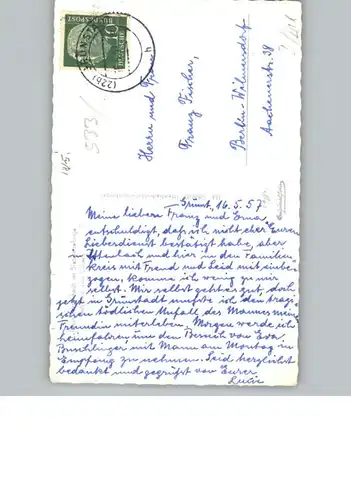 DEUTSCHE BUNDESPOST
10
(22b)
533/
1975
Herrn und Frau
Franz Fischer,
Berlin-Wilmersdorf
Aachenerstr. 38
Grünst, 16.5.57
Meine lieben Franz und Erna
entschuldigt, daß ich nicht eher Euren
Liebesdienst bestätigt habe, aber
in Offenbach und hier in den Familien-
kreis mit Freud und Leid mit einbe-
zogen, komme ich wenig zu mir
selbst. Mir selbst geht es gut, doch
jetzt in Grünstadt mußte ich den tragi-
schen tödlichen Unfall des Mannes meiner
Freundin miterleben. Morgen werde ich
heimfahren um den Besuch von Eva
mit Mann am Montag in
Empfang zu nehmen. Seid herzlichst
bedankt und gegrüßt von Eurer
Luise